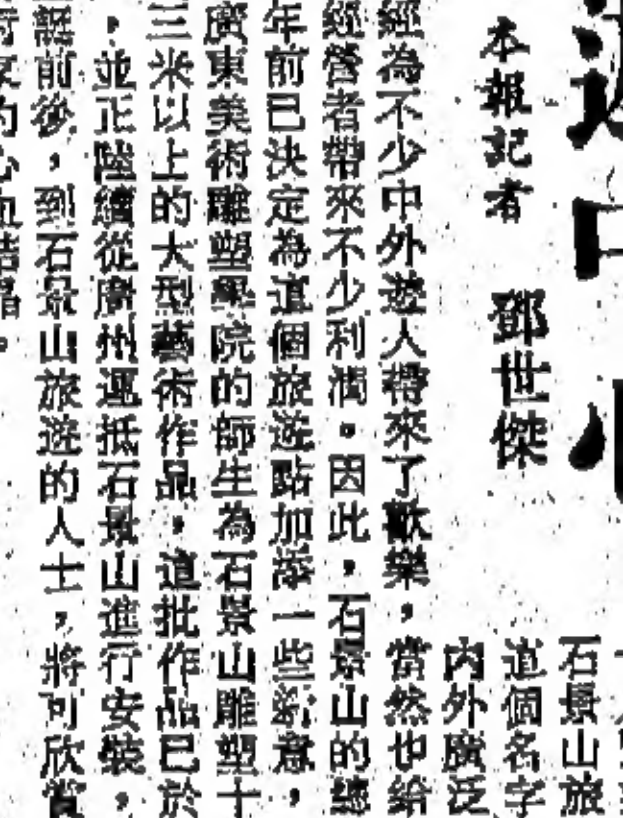 本報記者　鄧世傑
石景山旅
這個名字
內外廣泛
經為不少中外遊人帶來了歡樂，當然也給
經營者帶來不少利潤。因此，石景山的經
年前已決定為這個旅遊點加添一些新意，
廣東美術雕塑學院的師生為石景山雕塑十
三米以上的大型藝術作品，這批作品已於
，並正陸續從廣州運抵石景山進行安裝，
前後，到石景山旅遊的人士，將可欣賞
心血結晶。